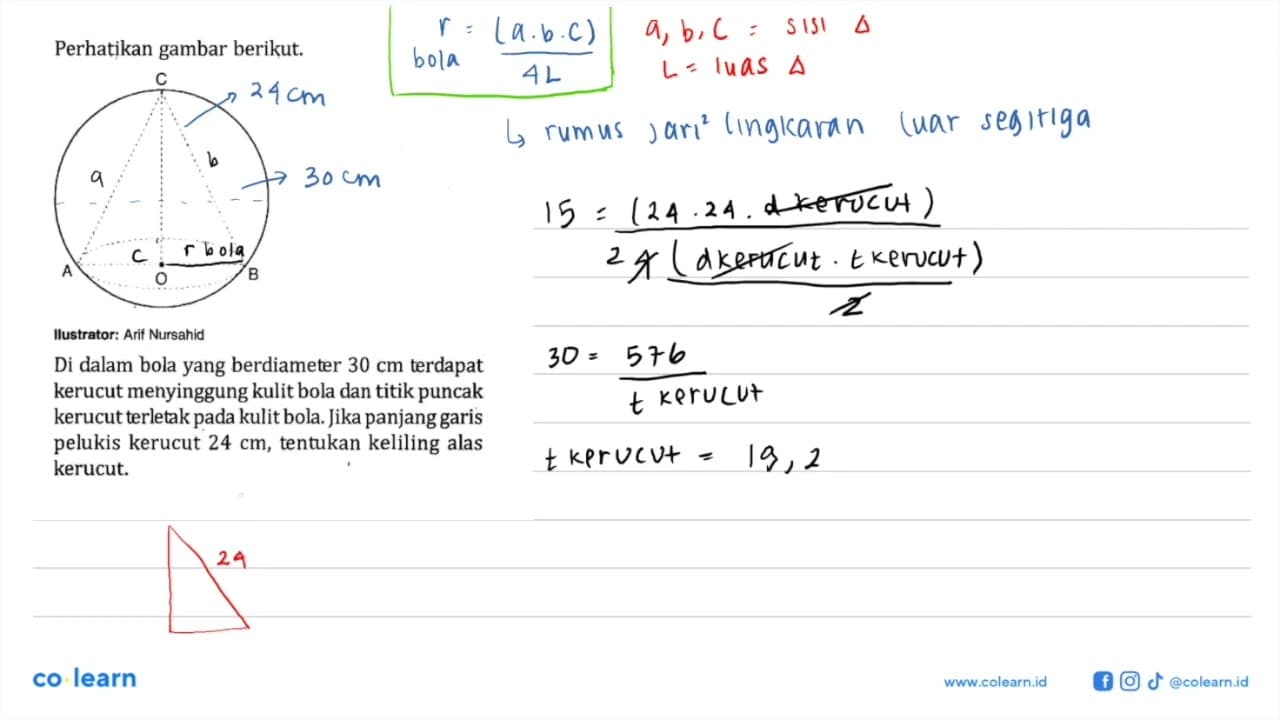 Perhatikan gambar berikut.
C
24 cm
b
a
30 cm
c
r bola
A
O
B
Ilustrator: Arif Nursahid
Di dalam bola yang berdiameter 30 cm terdapat
kerucut menyinggung kulit bola dan titik puncak
kerucut terletak pada kulit bola. Jika panjang garis
pelukis kerucut 24 cm, tentukan keliling alas
kerucut.
24
r bola = (a.b.c)
4L
a, b, c = sisi Δ
L = luas Δ
↳ rumus jari² lingkaran luar segitiga
15 = (24 . 24 . d kerucut)
2 4 (d kerucut . t kerucut)
2
30 = 576
t kerucut
t kerucut = 19,2
co·learn
www.colearn.id
@colearn.id